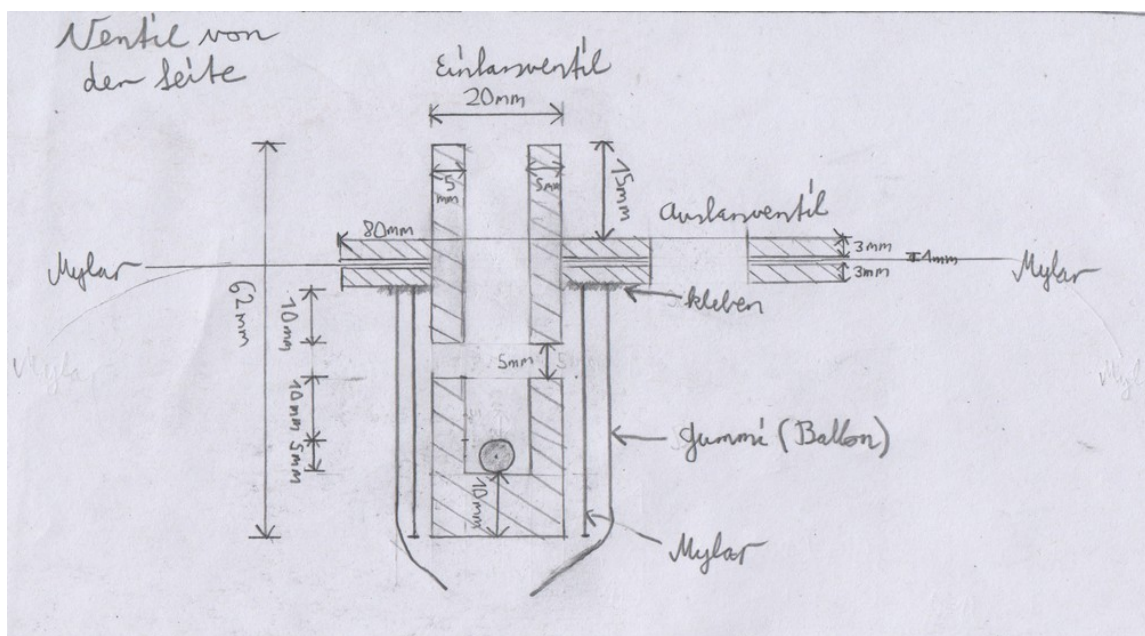 Ventil von
der Seite
Einlassventil
20mm
5
mm
5mm
15mm
Auslassventil
80mm
3mm
1mm
3mm
Mylar
Mylar
kleben
62mm
10mm
5mm
10mm
5mm
10mm
Gummi (Ballon)
Mylar